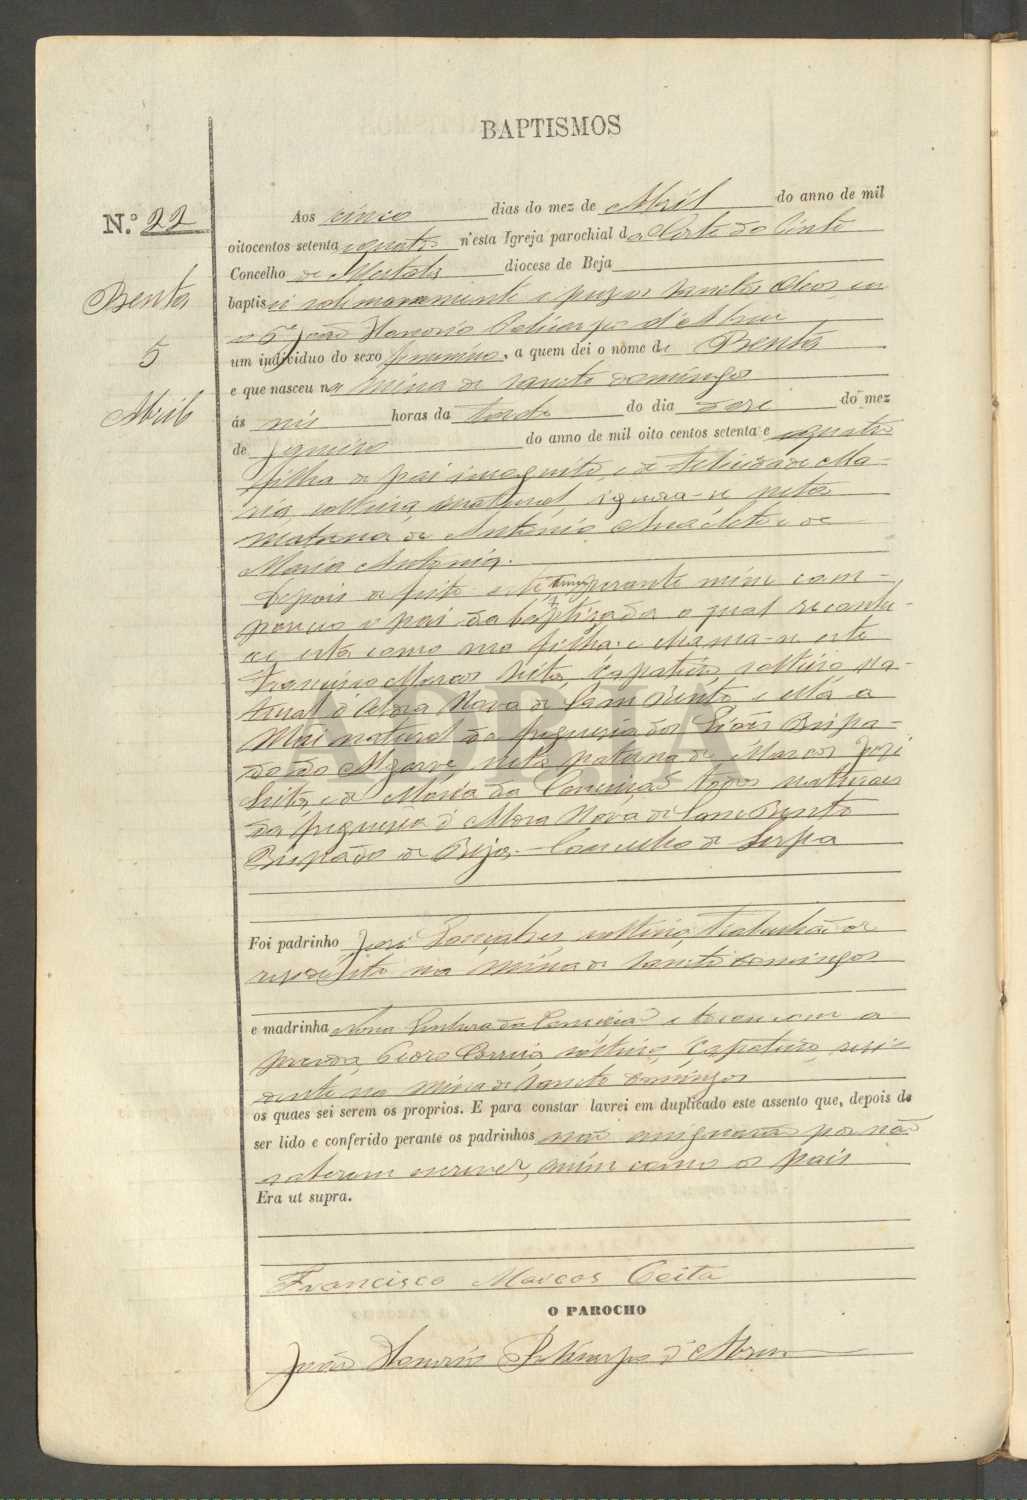 BAPTISMOS
N.º 22
Benta
5
Abril
Aos cinco dias do mez de Abril do anno de mil
oitocentos setenta e quatro n'esta Igreja parochial da Corte do Pinto
Concelho de Mertola diocese de Beja
baptisei solemnemente e puz os Sanctos Oleos eu
o Pe João Honorio Policarpo d'Abreu
um individuo do sexo femenino, a quem dei o nome de Benta
e que nasceu na mina de Sancto Domingos
ás seis horas da tarde do dia doze do mez
de Janeiro do anno de mil oito centos setenta e equatro
filha de pai incognito, e de Felicidade Ma-
ria, solteira, natural, ignora-se neta
materna de Antonio Anacleto e de
Maria Antonia.
Depois de feito este termo perante mim com-
pareceo o pai da baptizada o qual reconhe-
ce esta como sua filha: e chama-se este
Francisco Marcos Seita, Çapateiro, solteiro, na-
tural d'Aldea Nova de Sam Bento, e esta a
Mai natural da freguesia dos Bispa-
do do Algarve, neta paterna de Marcos José
Seita, e de Maria da Conceição todos naturaes
da freguesia d'Aldea Nova de Sam Bento
Bispado de Beja. Concelho de Serpa
ADBJA
Foi padrinho José Gonçalves, solteiro, Trabalhador
residente na Mina de Sancto Domingos
e madrinha Nossa Senhora da Conceição e tocou com a
prenda Pedro Correia solteiro, Çapateiro, resi-
dente na Mina de Sancto Domingos
os quaes sei serem os proprios. E para constar lavrei em duplicado este assento que, depois de
ser lido e conferido perante os padrinhos não assignarão por não
saberem escrever, assim como os pais
Era ut supra.
Francisco Marcos Ceita
O PAROCHO
João Honorio Policarpo d'Abreu